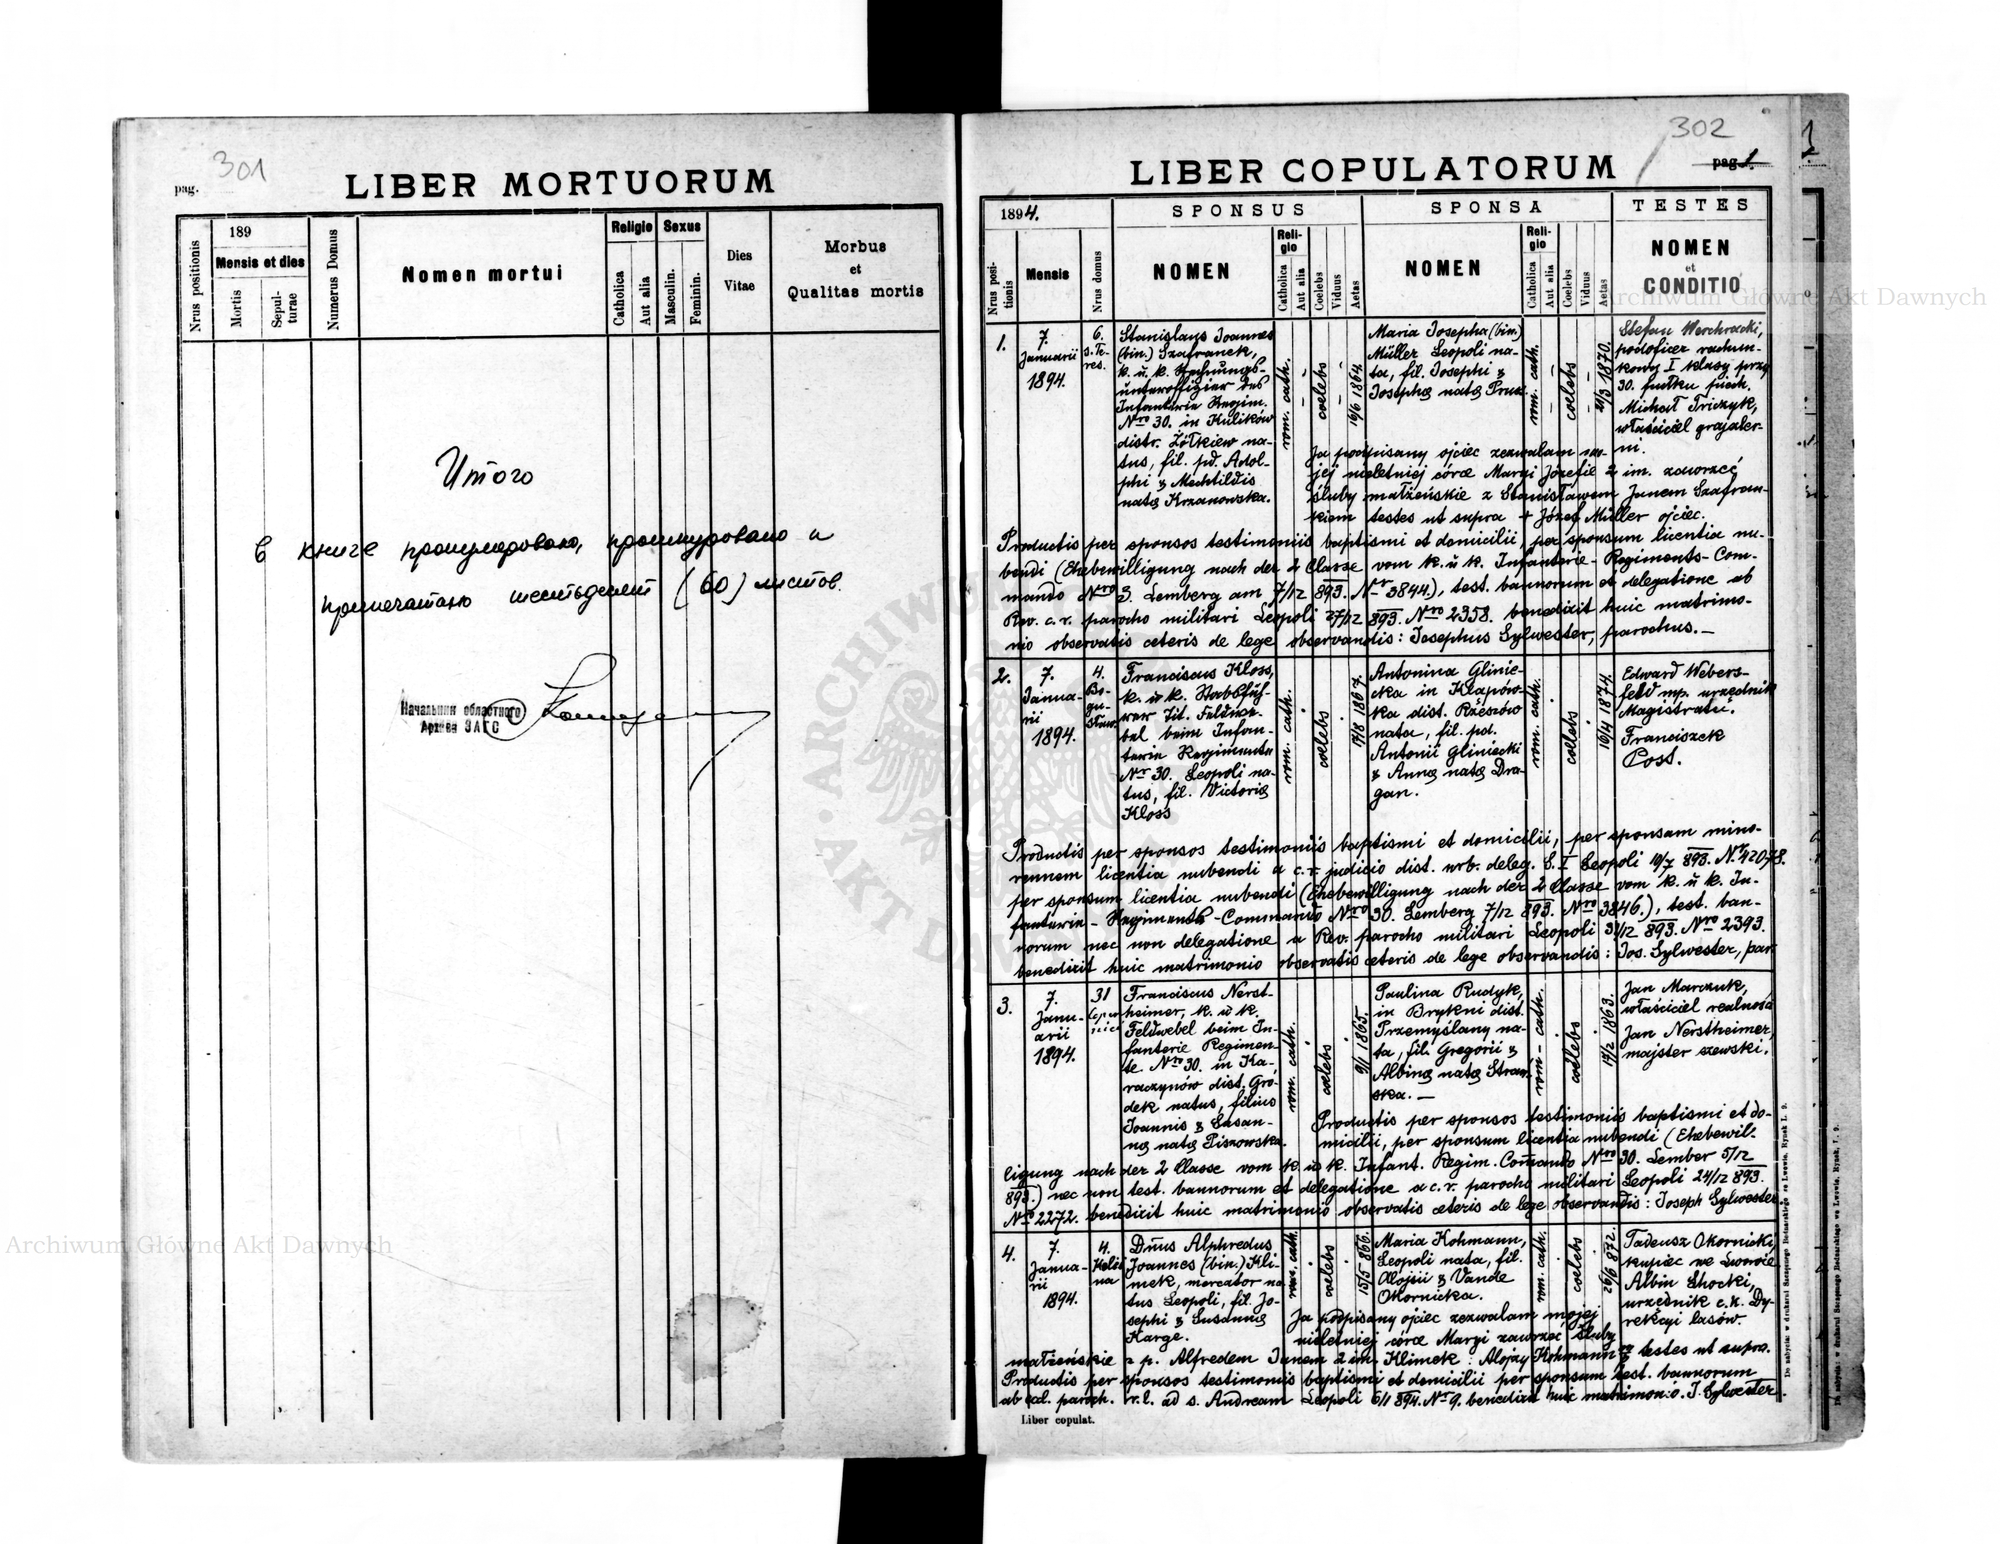 301
pag.
LIBER MORTUORUM
Nrus positionis
189
Mensis et dies
Mortis
Sepul-
turae
Numerus Domus
Nomen mortui
Religio
Catholica
Aut alia
Sexus
Masculin.
Feminin.
Dies
Vitae
Morbus
et
Qualitas mortis
Итого
В книге пронумеровано, прошнуровано и
припечатано шестьдесят (60) листов.
Начальник областного
Архива ЗАГС
302
pag. 1.
LIBER COPULATORUM
1894.
SPONSUS
SPONSA
TESTES
Nrus posi-
tionis
Mensis
Nrus domus
NOMEN
Reli-
gio
Catholica
Aut alia
Coelebs
Viduus
Aetas
NOMEN
Reli-
gio
Catholica
Aut alia
Coelebs
Viduus
Aetas
NOMEN
et
CONDITIO
1.
7.
Januarii
1894.
6.
s. Te-
res.
Stanislaus Joannes
(bin.) Szafranek,
k. u. k. Rechnungs-
unteroffizier des
Infanterie Regim.
Nro 30. in Kulików
distr. Żółkiew na-
tus, fil. pd. Adol-
phi & Mechtildis
natæ Krzanowska.
rom. cath.
coelebs
16/6 1864.
Maria Josepha (bin.)
Müller Leopoli na-
ta, fil. Josephi &
Josephæ natæ Prus
rom. cath.
coelebs
21/3 1870.
Stefan Werchracki,
podoficer rachun-
kowy I klasy przy
30. pułku piech.
Michał Triczyk,
właściciel grajzler-
ni.
Ja podpisany ojciec zezwalam mo-
jej nieletniej córce Maryi Józefie 2 im. zawrzeć
śluby małżeńskie z Stanisławem Janem Szafran-
kiem testes ut supra + Józef Müller ojciec.
Productis per sponsos testimoniis baptismi et domicilii, per sponsum licentia nu-
bendi (Ehebewilligung nach der 2 Classe vom k. u. k. Infanterie-Regiments-Com-
mando Nro 3. Lemberg am 7/12 893. Nr 3844.), test. bannorum et delegatione ab
Rev. c. r. parocho militari Leopoli 27/12 893. Nro 2358. benedixit huic matrimo-
nio observatis ceteris de lege observandis: Josephus Sylwester, parochus.—
2.
7.
Janua-
rii
1894.
4.
Bo-
gu-
sław.
Franciscus Kloss,
k. u. k. Stabsfüh-
rer Tit. Feldwe-
bel beim Infan-
terie Regimente
Nr 30. Leopoli na-
tus, fil. Victoriæ
Kloss
rom. cath.
coelebs
17/8 1867.
Antonina Glinie-
cka in Kłapów-
ka dist. Rzeszów
nata, fil. pd.
Antonii Gliniecki
& Annæ natæ Dra-
gan.
rom. cath.
coelebs
10/4 1874.
Edward Webers-
feld mp. urzędnik
Magistratu.
Franciszek
Post.
Productis per sponsos testimoniis baptismi et domicilii, per sponsam mino-
rennem licentia nubendi a c. r. judicio dist. urb. deleg. S. I Leopoli 10/7 893. Nr 42078.
per sponsum licentia nubendi (Ehebewilligung nach der 2 Classe vom k. u. k. In-
fanterie-Regiments-Commando Nro 30. Lemberg 7/12 893. Nro 3846.), test. ban-
norum nec non delegatione a Rev. parocho militari Leopoli 31/12 893. Nro 2393.
benedixit huic matrimonio observatis ceteris de lege observandis: Jos. Sylwester, par.
3.
7.
Janu-
arii
1894.
31
Franciscus Nerst-
heimer, k. u. k.
Feldwebel beim In-
fanterie Regimen-
te Nro 30. in Ka-
raczynów dist. Gró-
dek natus, filius
Joannis & Susan-
næ natæ Piszowska.
rom. cath.
coelebs
9/1 1865.
Paulina Rudyk,
in Brykni dist.
Przemyślany na-
ta, fil. Gregorii &
Albinæ natæ Straw-
ska. —
rom-cath.
coelebs
17/2 1863.
Jan Marczuk,
właściciel realności
Jan Nerstheimer,
majster szewski.
Productis per sponsos testimoniis baptismi et do-
micilii, per sponsum licentia nubendi (Ehebewil-
ligung nach der 2 Classe vom k. u. k. Infant. Regim. Comando Nro 30. Lember 5/12
893.) nec non test. bannorum et delegatione a c. r. parocho militari Leopoli 24/12 893.
Nro 2272. benedixit huic matrimonio observatis ceteris de lege observandis: Joseph Sylwester
4.
7.
Janua-
rii
1894.
4.
Dnus Alphredus
Joannes (bin.) Kli-
mek, mercator na-
tus Leopoli, fil. Jo-
sephi & Susannæ
Karge.
rom. cath.
coelebs
15/5 866.
Maria Kohmann,
Leopoli nata, fil.
Alojsii & Vandæ
Okornicka.
rom. cath.
coelebs
26/6 872.
Tadeusz Okornicki,
kupiec we Lwowie
Albin Słocki,
urzędnik c. k. Dy-
rekcyi lasów.
Ja podpisany ojciec zezwalam mojej
nieletniej córce Maryi zawrzeć śluby
małżeńskie z p. Alfredem Janem 2 im. Klimek: Alojzy Kohmann testes ut supra.
Productis per sponsos testimoniis baptismi et domicilii per sponsam test. bannorum
ab eccl. paroch. r. l. ad s. Andream Leopoli 6/1 894. Nr 9. benedixit huic matrimonio. J. Sylwester
Liber copulat.
Do nabycia: w drukarni Szczęsnego Bednarskiego we Lwowie, Rynek l. 9.
Archiwum Główne Akt Dawnych
Archiwum Główne Akt Dawnych